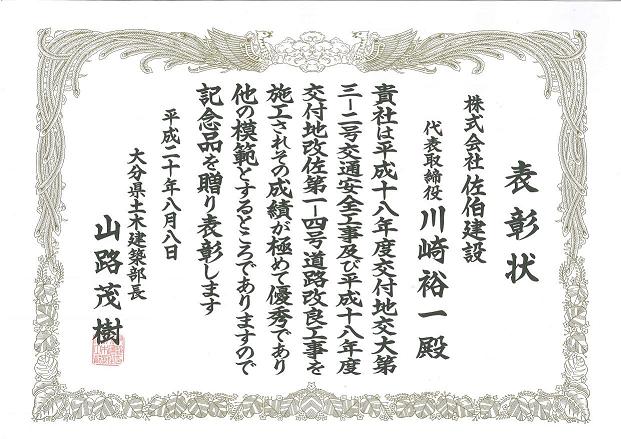 表彰状
株式会社 佐伯建設
代表取締役 川崎裕一殿
貴社は平成十八年度交付地交大第
三ー二号交通安全工事及び平成十八年度
交付地改佐第一ー四号道路改良工事を
施工されその成績が極めて優秀であり
他の模範とするところでありますので
記念品を贈り表彰します
平成二十年八月八日
大分県土木建築部長
山路茂樹